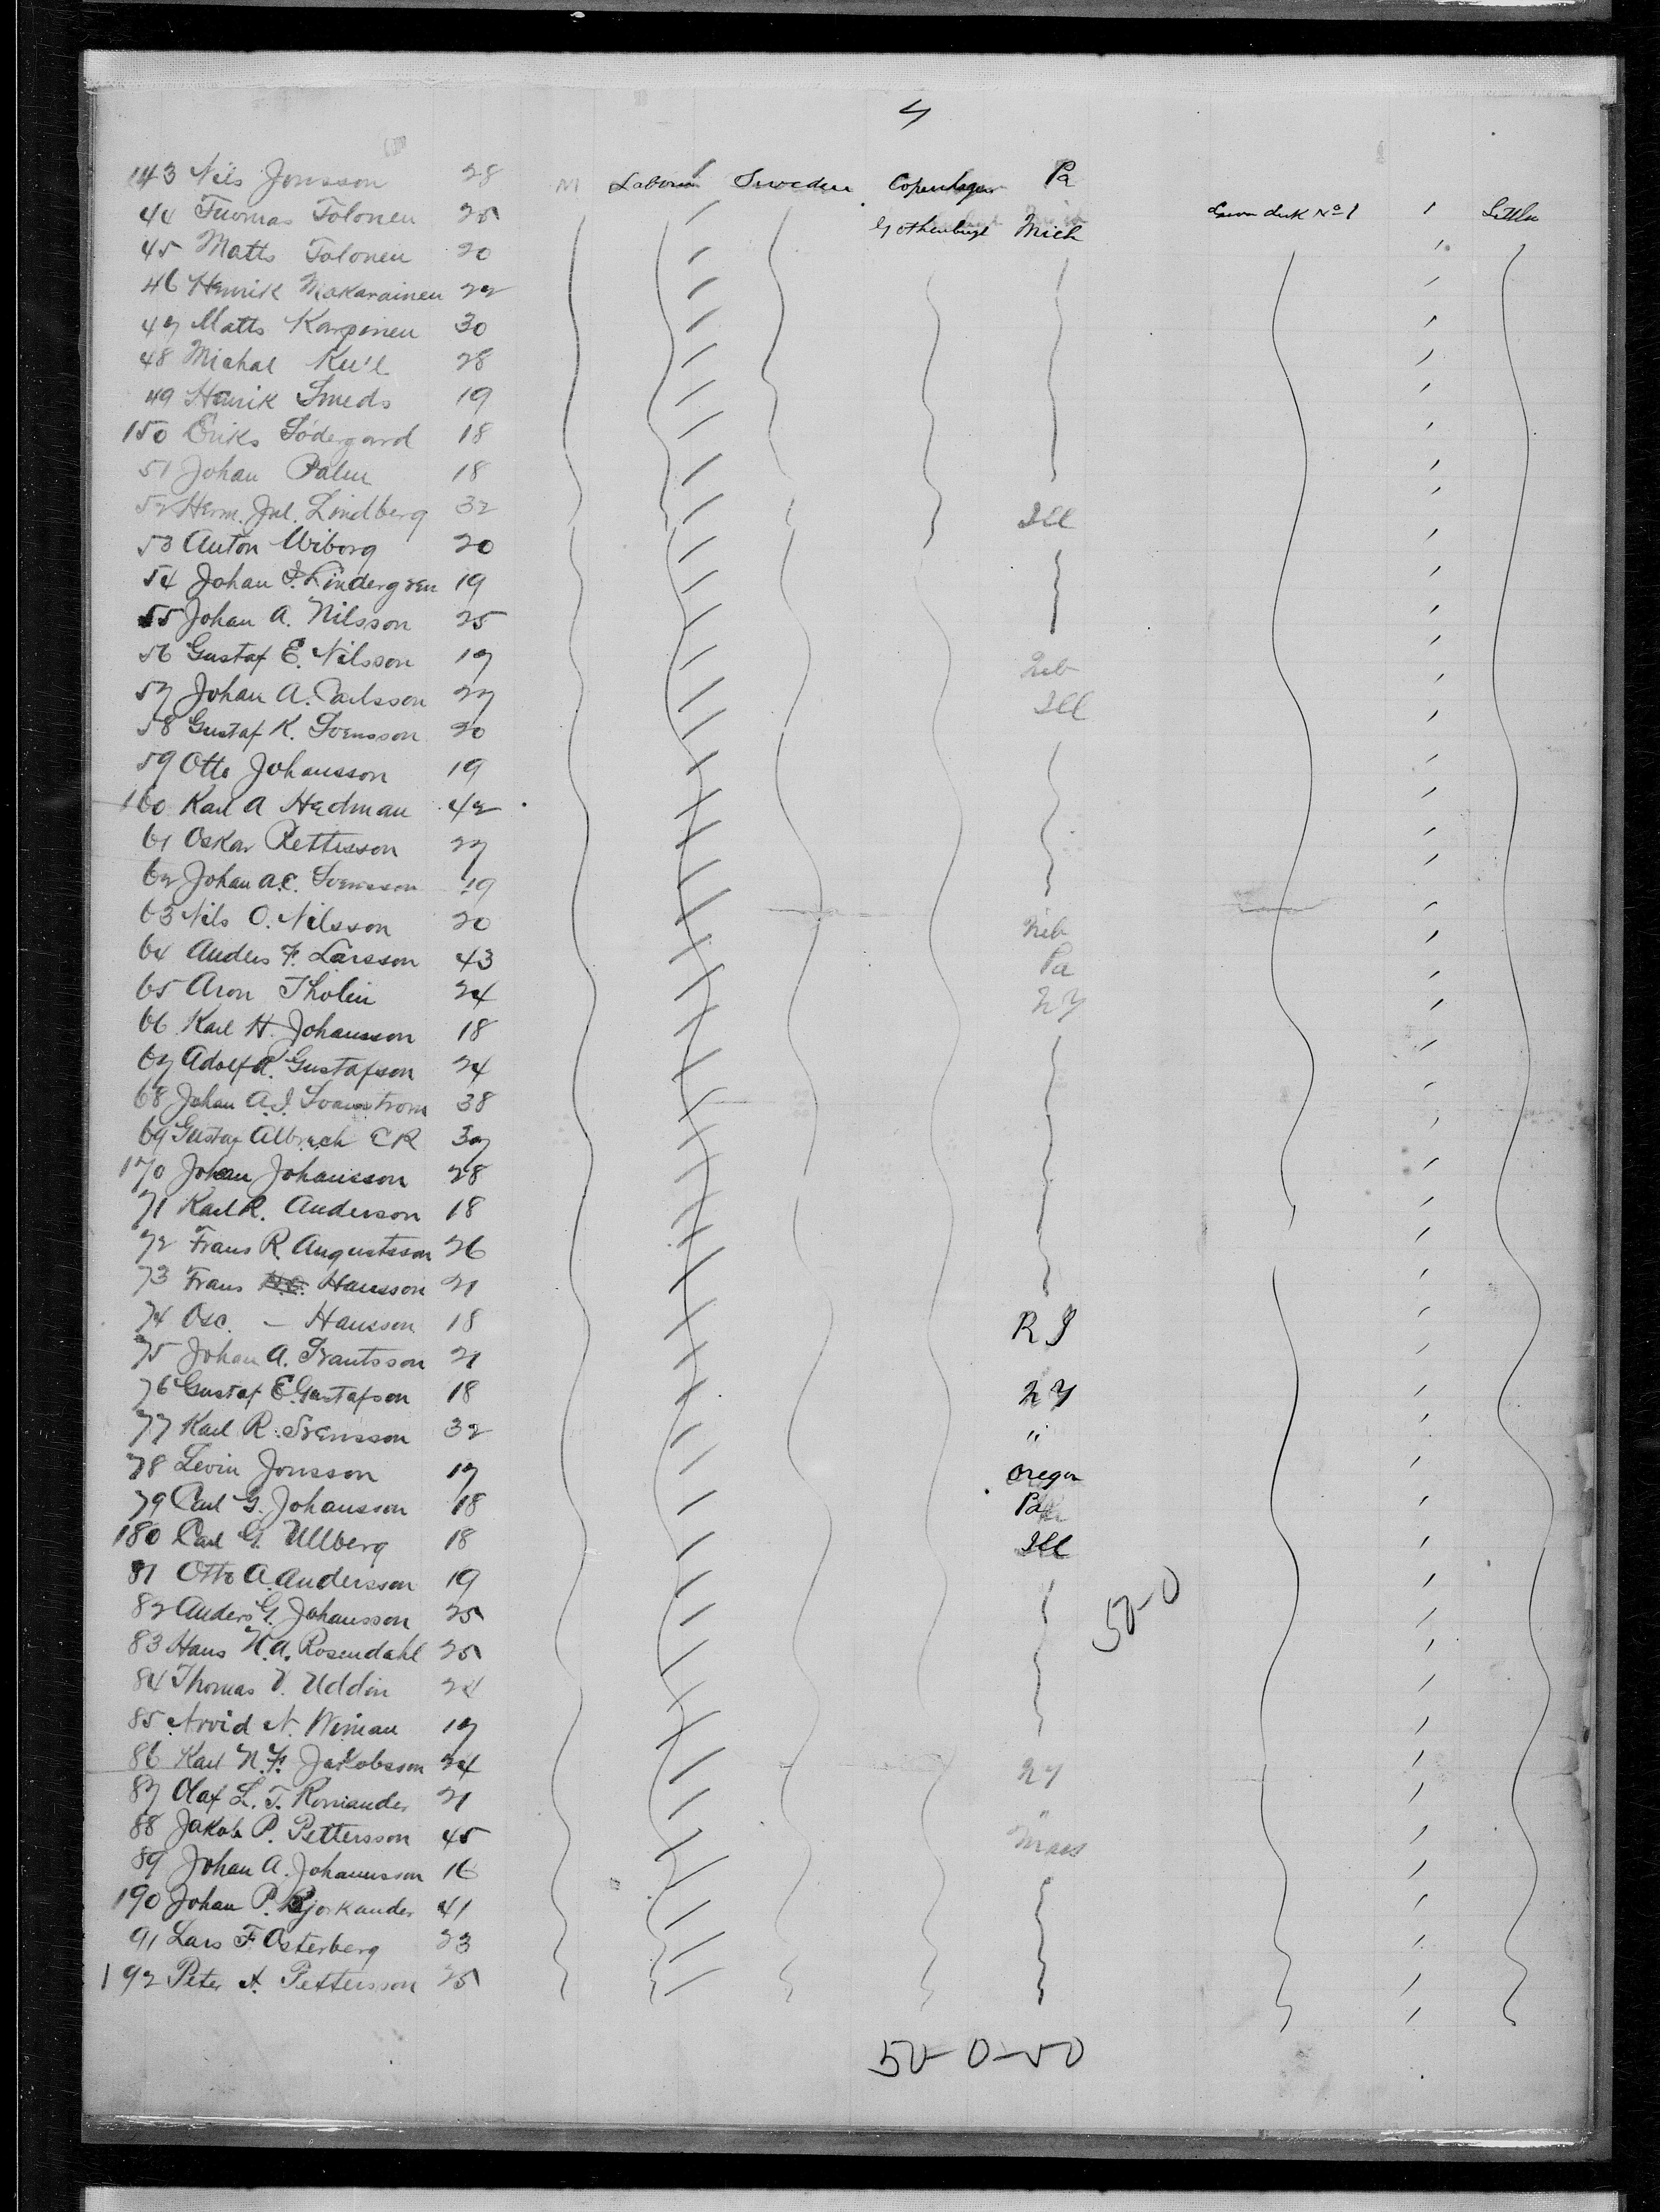 4
143 Nils Jonsson 28 M Laborer Sweden Copenhagen Pa
44 Tuomas Tolonen 25 Gothenburg Mich Lower deck No 1 1 Settler
45 Matts Tolonen 20
46 Henrik Makarainen 22
47 Matts Karpinen 30
48 Michal 28
49 Henrik Smeds 19
150 Eriks Södergard 18
51 Johan Palm 18
52 Herm. Jul. Lindberg 32 Ill
53 Anton Wiborg 20
54 Johan F. Lindergren 19
55 Johan A. Nilsson 25
56 Gustaf E. Nilsson 17 Neb
57 Johan A. Carlsson 27 Ill
58 Gustaf K. Svensson 20
59 Otto Johansson 19
160 Karl A Hedman 42
61 Oskar Pettersson 27
62 Johan A.E. Svensson 19
63 Nils O. Nilsson 20 Neb
64 Anders F. Larsson 43 Pa
65 Aron Tholin 24 NY
66 Karl H. Johansson 18
67 Adolf A. Gustafson 24
68 Johan A.I. Svanstrom 38
69 Gustaf Albrech E R 37
170 Johan Johansson 28
71 Karl R. Anderson 18
72 Frans R. Augustsson 26
73 Frans Hansson 21
74 Osc. — Hansson 18 R I
75 Johan A. Frantsson 21
76 Gustaf E. Gustafson 18 NY
77 Karl R. Svensson 32 "
78 Levin Jonsson 17 Oregon
79 Carl G. Johansson 18 Pa
180 Carl G. Ullberg 18 Ill
81 Otto A. Andersson 19
82 Anders G. Johansson 25 50-0
83 Hans N.A. Rosendahl 25
84 Thomas V. Uddin 24
85 Arvid N. Wiman 17
86 Karl N.F. Jakobsson 24 NY
87 Olaf L. T. Romander 21 "
88 Jakob P. Pettersson 45 Mass
89 Johan A. Johannsson 16
190 Johan P. Bjorkander 41
91 Lars F Osterberg 23
192 Peter A. Pettersson 25
50-0-50